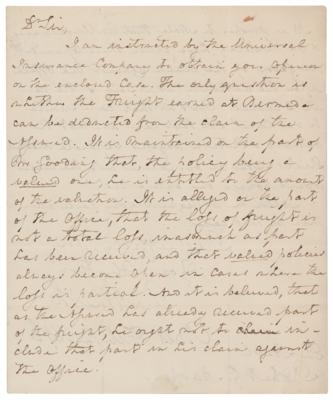 Dr Sir,
I am instructed by the Universal
Insurance Company to obtain your Opinion
on the enclosed Case. The only question is
whether the Freight earned at Bermuda
can be deducted from the claim of the
Assured. It is maintained on the part of
Mr Goodwin that, the policy being a
valued one, he is entitled to the amount
of the valuation. It is alleged on the part
of the Office, that the loss of freight is
not a total loss, inasmuch as part
has been received, and that valued policies
always become open in cases where the
loss is partial. And it is believed, that
as the Assured has already received part
of the freight, he ought not to claim in-
clude that part in his claim against
the Office.